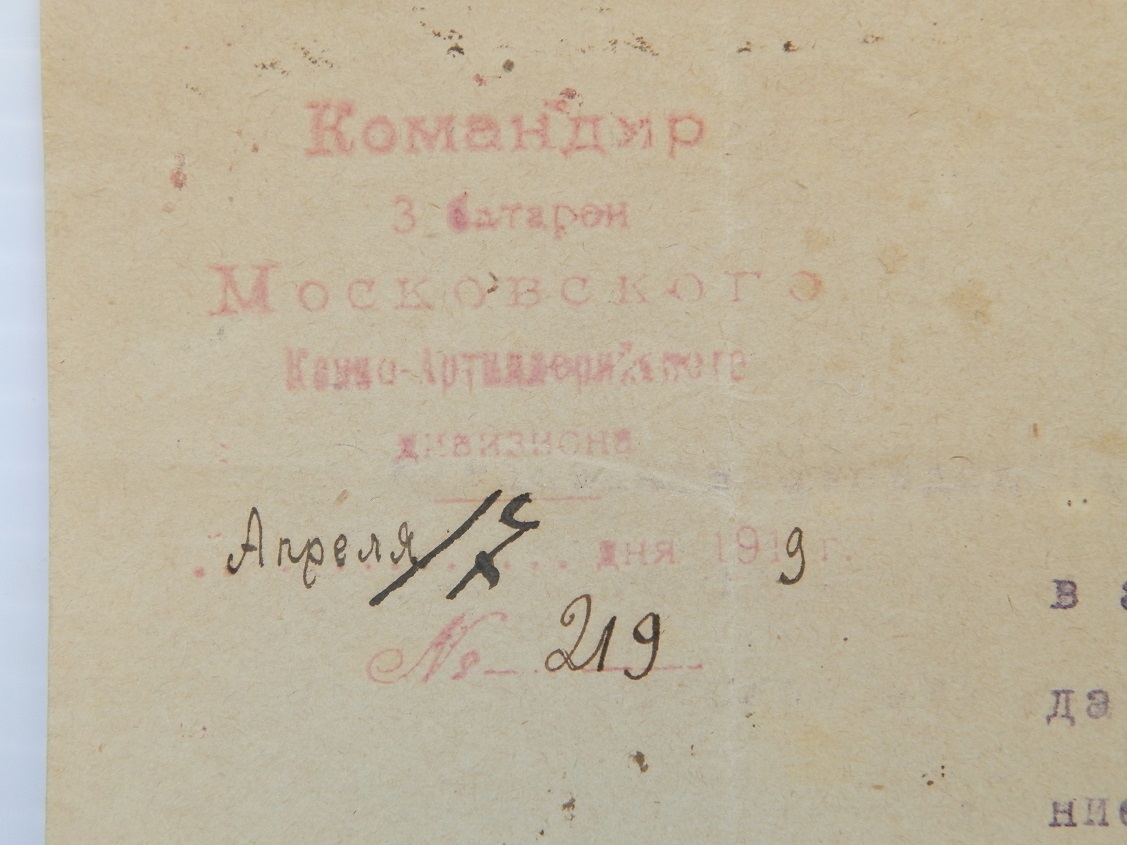 Командир
3 батареи
Московского
Конно-Артиллерийского
дивизиона
Апреля дня 1919 г.
№ 219
в
да
ние